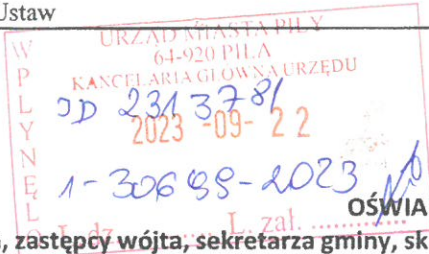 Ustaw
WPŁYNĘŁO
URZĄD MIASTA PIŁY
64-920 PIŁA
KANCELARIA GŁÓWNA URZĘDU
JD 2313781
2023 -09- 22
1-30699-2023
L.dz. ............ L. zał. ............
OŚWIA
, zastępcy wójta, sekretarza gminy, sk